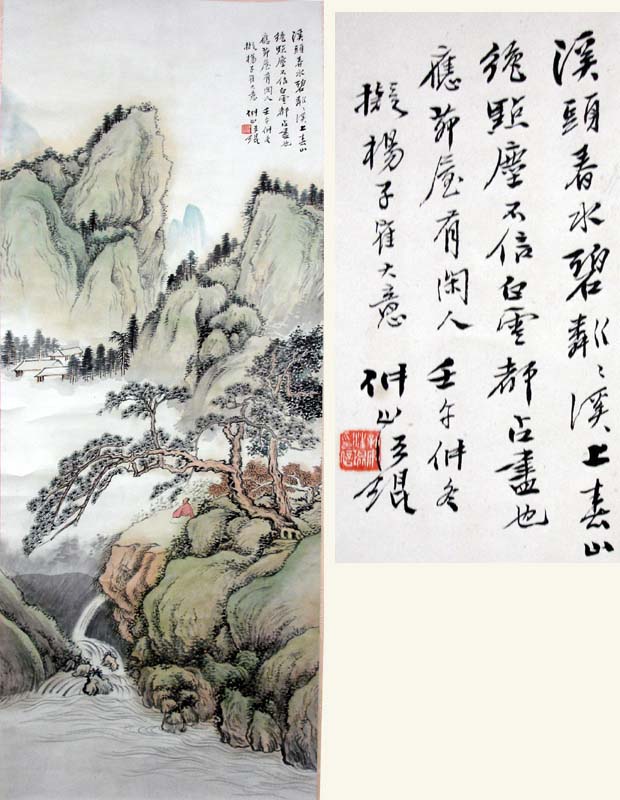 溪頭春水碧粼〻溪上春山
絕點塵不信白雲都占盡也
應茆屋有閑人壬午仲冬
擬楊子隺大意 仲山王琨
溪頭春水碧粼〻溪上春山
絕點塵不信白雲都占盡也
應茆屋有閑人 壬午仲冬
擬楊子隺大意 仲山王琨